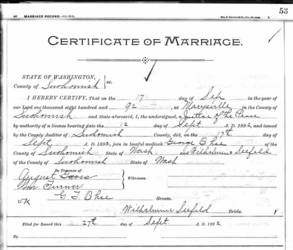 MARRIAGE RECORD
53
CERTIFICATE OF MARRIAGE.
STATE OF WASHINGTON,
County of Snohomish ss.
I HEREBY CERTIFY, That on the 17 day of Sep in the year
of our Lord one thousand eight hundred and 92 at Marysville in the County of
Snohomish and State aforesaid, I, the undersigned, a Justice of the Peace
by authority of a license bearing date the 12 day of Sept A. D. 1892, and issued
by the County Auditor of Snohomish County, did, on the 17th day of
Sept A. D. 1892, join in lawful wedlock George B
of the County of Snohomish State of Wash and Wilhelmine Seefeld
of the County of Snohomish State of Wash
In Presence of
August
Witnesses
Turner
G. T.
Groom.
Wilhelmine Seefeld Bride.
Filed for Record this 27th day of Sept A. D. 1892